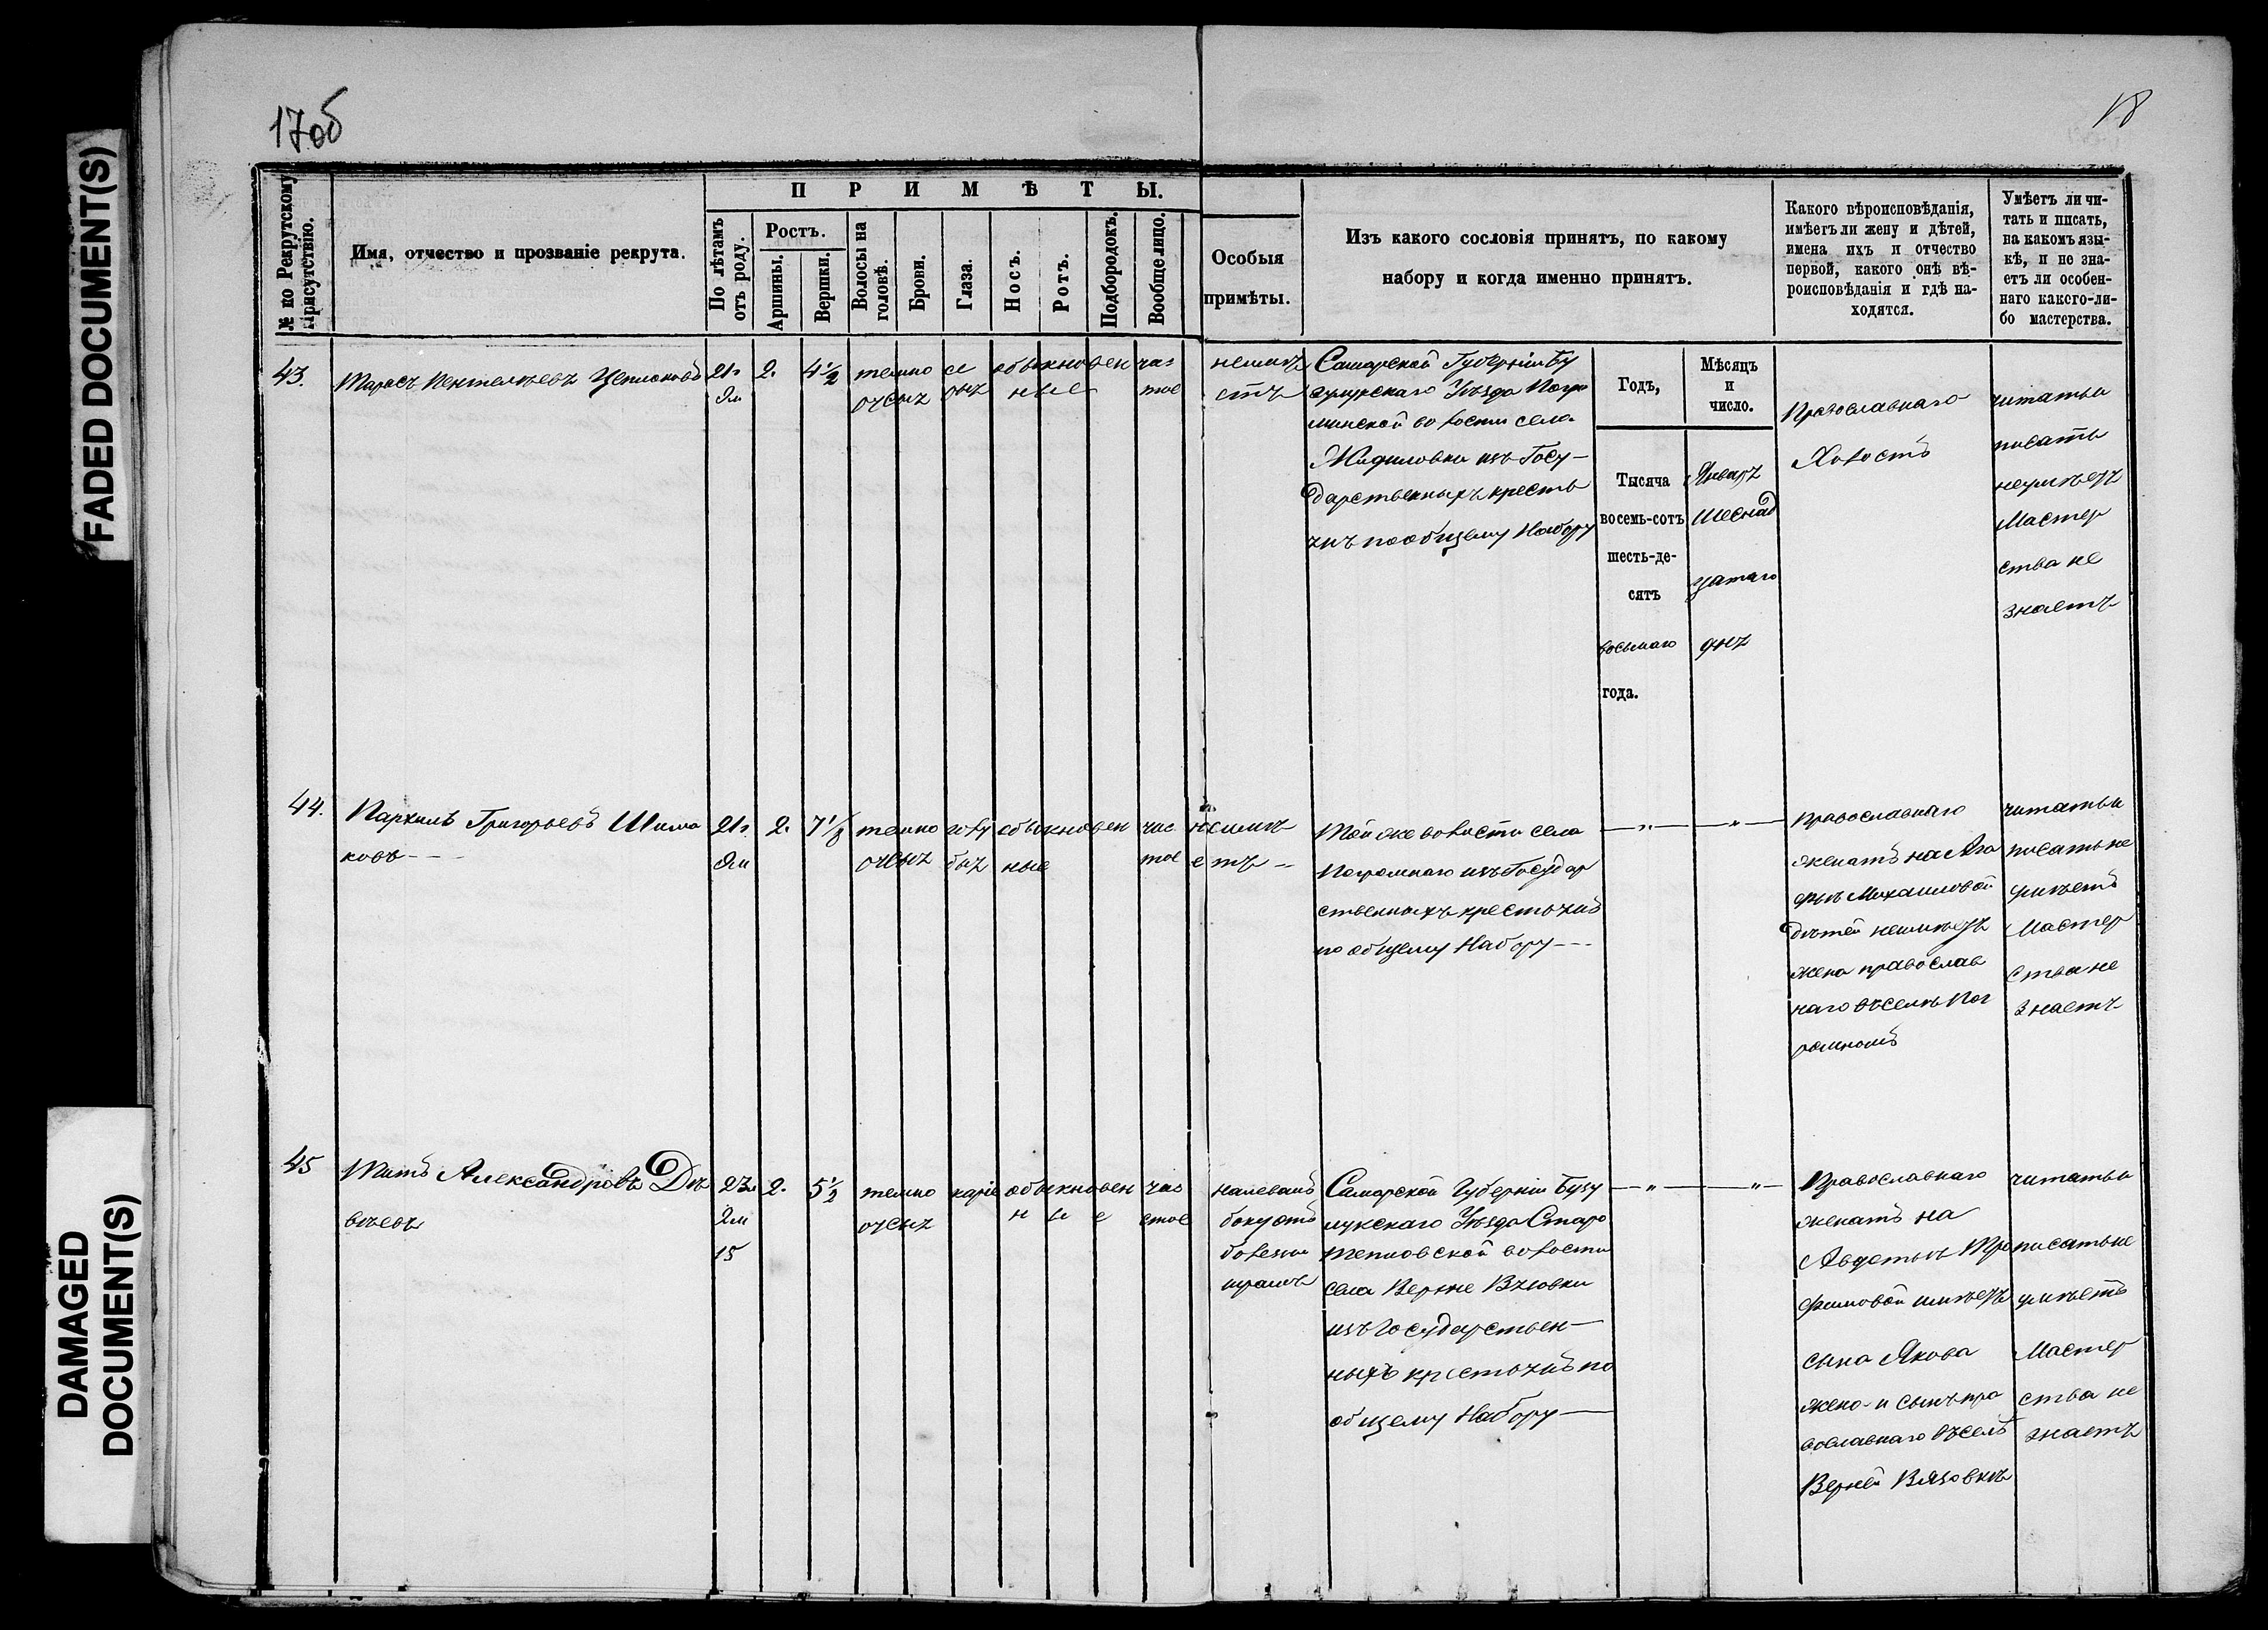 FADED DOCUMENT(S)
DAMAGED
DOCUMENT(S)
17об
18
№ по Рекрутскому
Присутствію.
Имя, отчество и прозваніе рекрута.
ПРИМѢТЫ.
По лѣтамъ
отъ роду.
Ростъ.
Аршины.
Вершки.
Волосы на
головѣ.
Брови.
Глаза.
Носъ.
Ротъ.
Подбородокъ.
Вообще лицо.
Особыя
примѣты.
Изъ какого сословія принятъ, по какому
набору и когда именно принятъ.
Какого вѣроисповѣданія,
имѣетъ ли жену и дѣтей,
имена ихъ и отчество
первой, какого онѣ вѣ-
роисповѣданія и гдѣ на-
ходятся.
Умѣетъ ли чи-
тать и писать,
на какомъ язы-
кѣ, и не зна-
етъ ли особен-
наго какого-ли-
бо мастерства.
43.
Тарасъ Пентелѣевъ
21г
2.
4 1/2
темно
русыя
се
рыя
обыкновен
ные
чис
тое
неимѣ
етъ
Самарской Губерніи Бу
зулукскаго Уѣзда Погро
минской волости села
изъ Госу-
дарственныхъ кресть
янъ по общему Набору
Годъ,
Мѣсяцъ
и
число.
Тысяча
восемь-сотъ
шесть-де-
сятъ
восьмаго
года.
Января
Шеснад
цатаго
дня
Православнаго
Холостъ
читать и
писать
неумѣетъ
Мастер
ства не
знаетъ
44.
Пархилъ Григорьевъ Шима
ковъ - - -
21г
2.
7 1/8
темно
русыя
голу
быя
обыкновен
ные
чис
тое
неимѣ
етъ -
Той же волости села
Погромнаго изъ Государ
ственныхъ крестьянъ
по общему Набору - - -
— „ — „ —
православнаго
женатъ на Ага
фьѣ Михаиловой
дѣтей неимѣетъ
жена православ
наго въ селѣ Пог
ромномъ
читать и
писать не
умѣетъ
Мастер
ства не
знаетъ
45
Титъ Александровъ Дѣ
евъ
23
15
2.
5 1/2
темно
русыя
каріе
обыкновен
ные
чис
тое
налевомъ
боку отъ
болезни
шрамъ
Самарской Губерніи Бузу
лукскаго Уѣзда Старо
тепловской волости
села Верхне Вязовки
изъ Государствен-
ныхъ крестьянъ по
общему Набору —
— „ — „ —
Православнаго
женатъ на
Авдотьѣ Тро
фимовой имѣетъ
сына Якова
жена и сынъ пра
вославнаго въ селѣ
Верхней Вязовкѣ
читать и
писать не
умѣетъ
Мастер
ства не
знаетъ